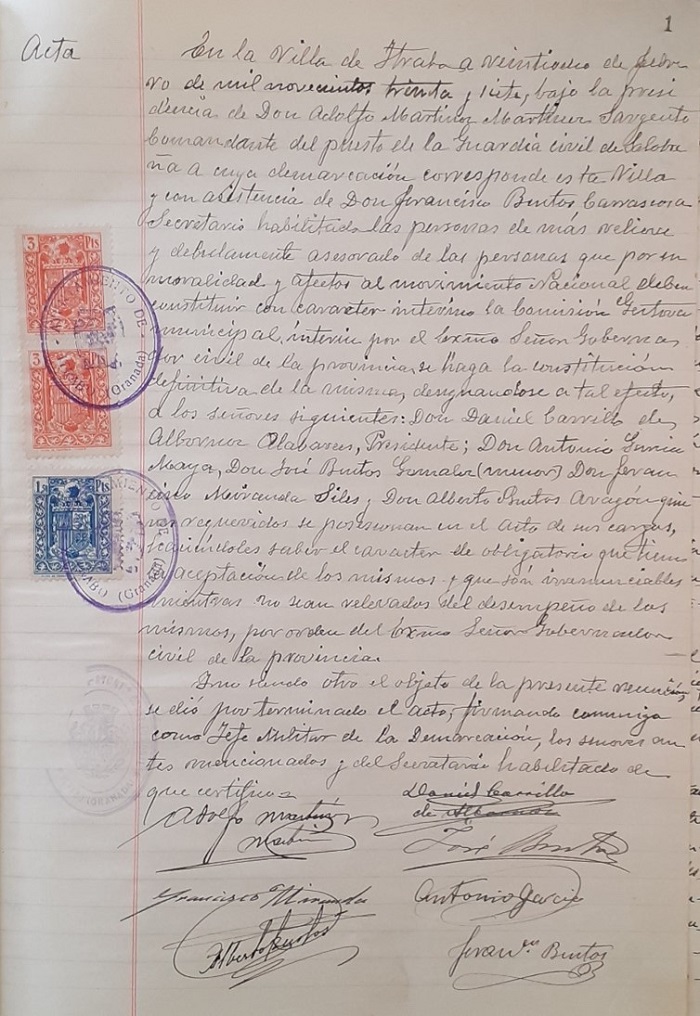 1
Acta
En la Villa de Itrabo a veintiocho de febre
ro de mil novecientos treinta y siete, bajo la presi
dencia de Don Adolfo Martinez Martinez Sargento
Comandante del puesto de la Guardia civil de
a cuya demarcación corresponde esta Villa
y con asistencia de Don Francisco Bustos Carrascosa
Secretario habilitado, las personas de más relieve
y debidamente asesorado de las personas que por su
moralidad y afectos al movimiento Nacional deben
constituir con caracter interino la Comisión Gestora
municipal, interin por el Exmo Señor Goberna
dor civil de la provincia, se haga la constitución
definitiva de la misma, designandose a tal efecto,
a los señores siguientes: Don Daniel Carrillo de
Albornoz Presidente; Don Antonio Garcia
Maya, Don José Bustos Gonzalez (menor) Don Fran
cisco Miranda Siles y Don Alberto Bustos Aragón quie
nes requeridos se posesionan en el acto de sus cargos,
saber el caracter de obligatorio que tiene
aceptación de los mismos y que són irrenunciables
mientras no sean relevados del desempeño de los
mismos, por orden del Exmo Señor Gobernador
civil de la provincia.
Y no siendo otro el objeto de la presente reunión,
se dió por terminado el acto, firmando conmigo
como Jefe Militar de la Demarcación, los señores an
tes mencionados y del Secretario habilitado de
que certifico=
Adolfo Martinez
Martinez
Daniel Carrillo
de Albornoz
José Bustos
Francisco Miranda
Antonio Garcia
Alberto Bustos
Fran.co Bustos
3 Pts
3 Pts
1 Pts
AYUNTAMIENTO DE
(Granada)
ITRABO (Granada)